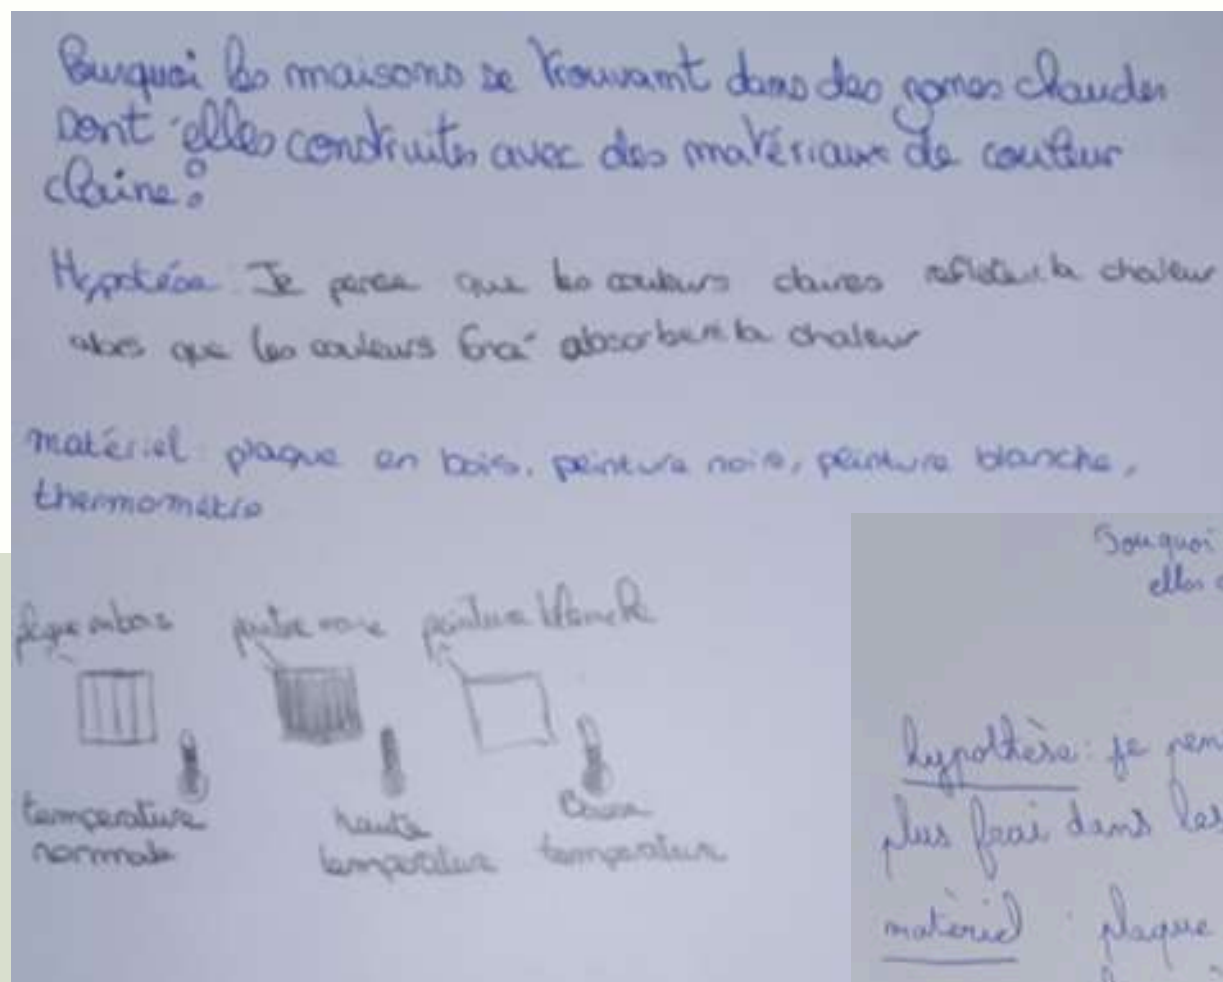 Pourquoi les maisons se trouvant dans des zones chaudes
sont-elles construites avec des matériaux de couleur
claire?
Hypotése: Je pense que les couleurs claires reflètent la chaleur
alors que les couleurs absorbent la chaleur
matériel: plaque en bois, peinture noire, peinture blanche,
thermomètre
plaque en bois peinture noire peinture blanche
temperature
normale
haute
temperature
Basse
temperature
Pourquoi
elles
hypothèse: je pen
plus frai dans les
matériel: plaque